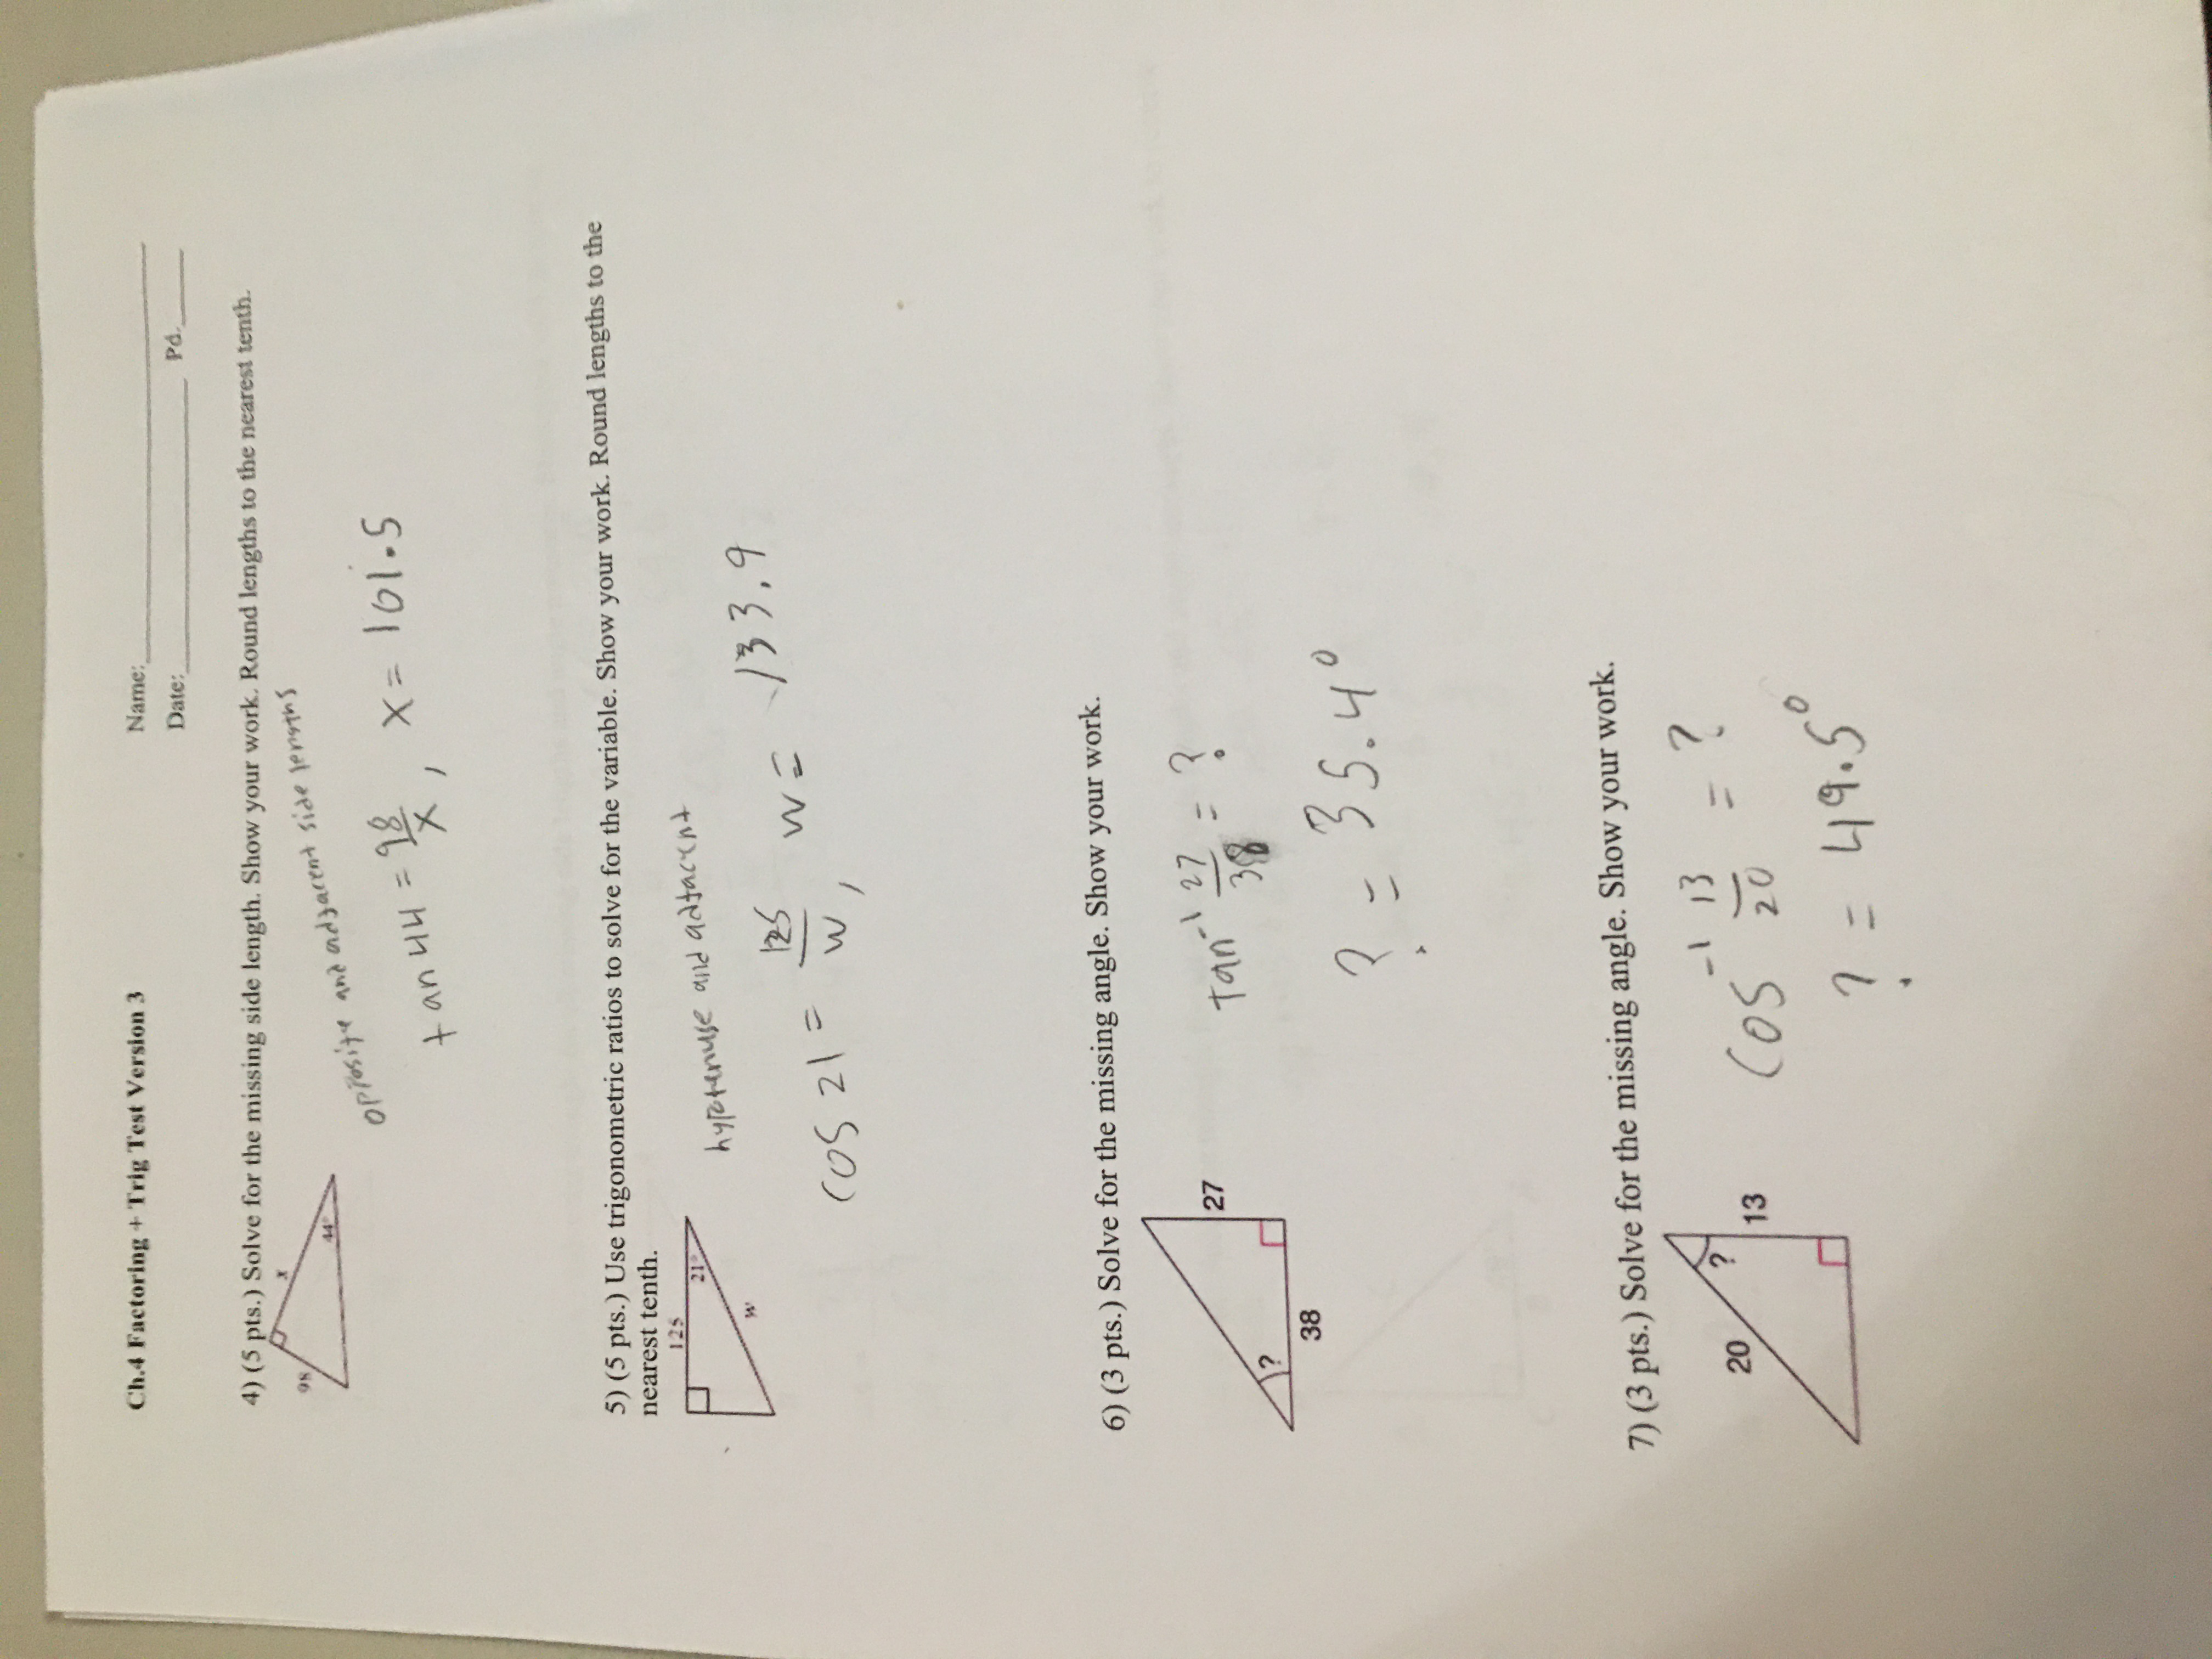 Ch.4 Factoring + Trig Test Version 3
Name:
Date: Pd.
4) (5 pts.) Solve for the missing side length. Show your work. Round lengths to the nearest tenth.
98
x
44°
opposite and adjacent side lengths
tan 44 = 98/x , x = 101.5
5) (5 pts.) Use trigonometric ratios to solve for the variable. Show your work. Round lengths to the
nearest tenth.
125
21°
w
hypotenuse and adjacent
cos 21 = 125/w , w = 133.9
6) (3 pts.) Solve for the missing angle. Show your work.
27
?
38
tan⁻¹ 27/38 = ?
? = 35.4°
7) (3 pts.) Solve for the missing angle. Show your work.
20
?
13
cos⁻¹ 13/20 = ?
? = 49.5°